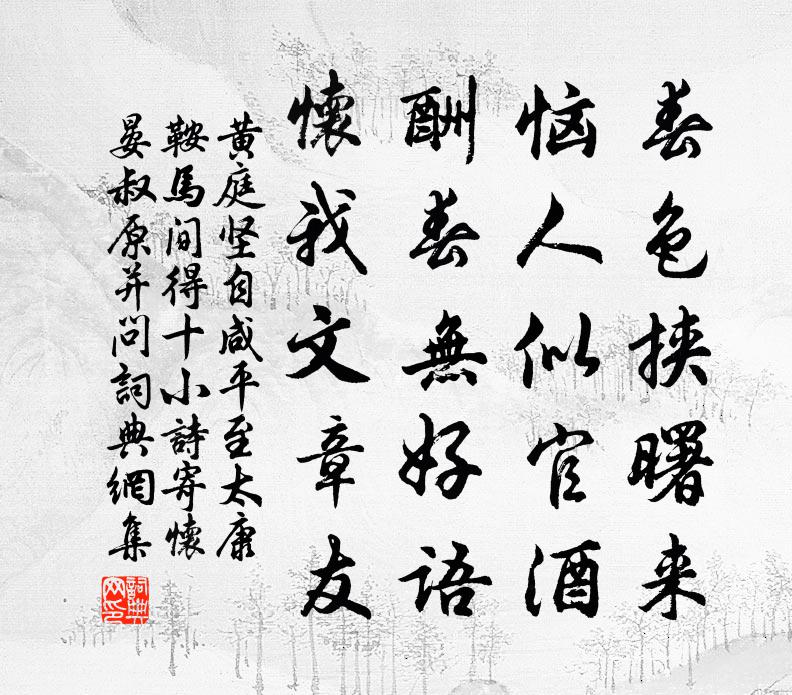 春色挟曙来
恼人似官酒
酬春無好语
懷我文章友
黄庭坚自咸平至太康
鞍馬间得十小詩寄懷
晏叔原并问詞典網集
詞典網印